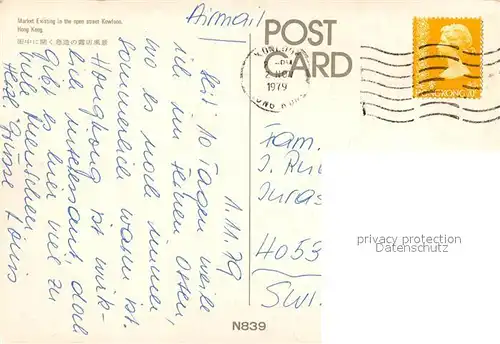 Market Existing in the open street Kowloon,
Hong Kong.
Airmail
POST
CARD
KOWLOON
2 NOV
1979
HONG KONG
HONG KONG
1.11.79
Seit 10 Tagen weile
ich im Fernen Osten,
wo es noch immer
sommerlich warm ist.
Hongkong ist wirk-
lich interessant doch
gibt es hier viel zu
viele Menschen
Herzl. Grüsse
Fam.
J.
Juras
4053
SWI
privacy protection
Datenschutz
N839